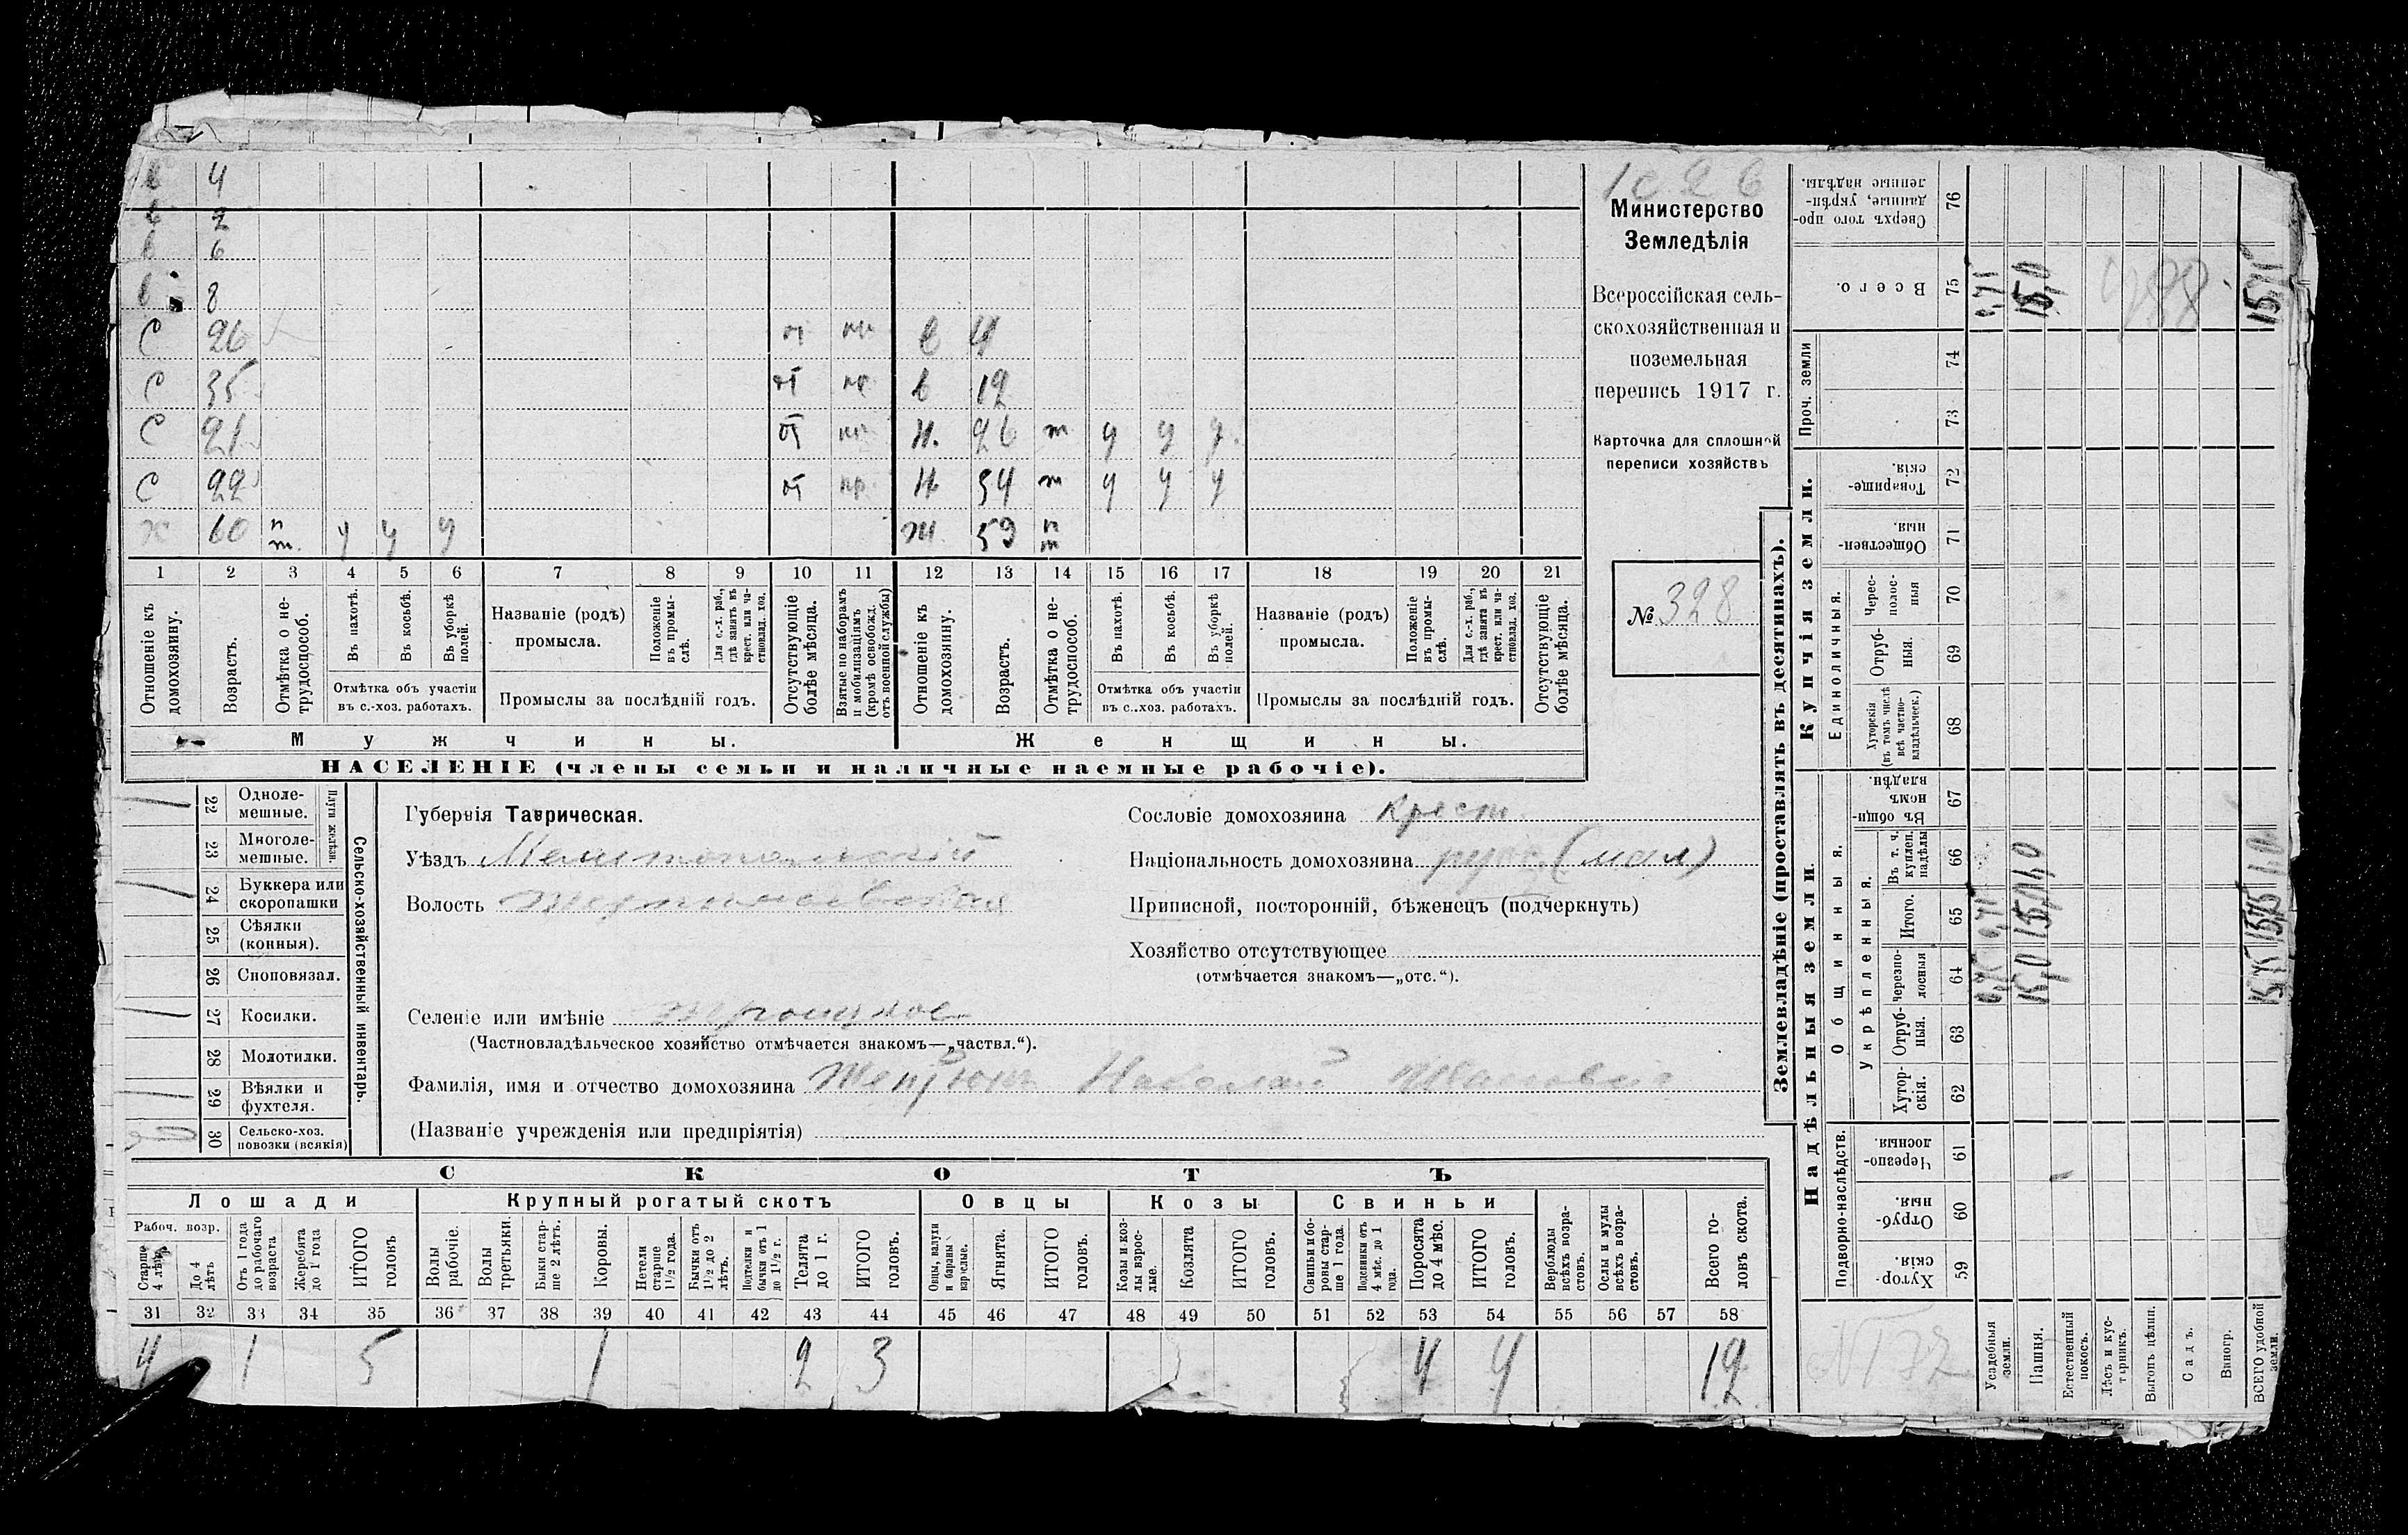 в 4
в 2
в 6
в 8
С 26 от пр в 4
С 35 от пр в 12
С 21 от пр Н. 26 т у у у
С 22 от пр Н 34 т у у у
х 60 п т. у у у Ж 59 п т
1 2 3 4 5 6 7 8 9 10 11 12 13 14 15 16 17 18 19 20 21
Отношеніе къ домохозяину.
Возрастъ.
Отмѣтка о нетрудоспособ.
Въ пахотѣ.
Въ косьбѣ.
Въ уборкѣ полей.
Отмѣтка объ участіи
въ с.-хоз. работахъ.
Названіе (родъ)
промысла.
Положеніе въ промыслѣ.
Для с.-х. раб., гдѣ занятъ въ крест. или частновлад. хоз.
Промыслы за послѣдній годъ.
Отсутствующіе болѣе мѣсяца.
Взятые по наборамъ и мобилизаціямъ (кромѣ освобожд. отъ военной службы)
Отношеніе къ домохозяину.
Возрастъ.
Отмѣтка о нетрудоспособ.
Въ пахотѣ.
Въ косьбѣ.
Въ уборкѣ полей.
Отмѣтка объ участіи
въ с..хоз. работахъ.
Названіе (родъ)
промысла.
Положеніе въ промыслѣ.
Для с.-х. раб., гдѣ занята въ крест. или частновлад. хоз.
Промыслы за послѣдній годъ.
Отсутствующіе болѣе мѣсяца.
Мужчины. Женщины.
НАСЕЛЕНІЕ (члены семьи и наличные наемные рабочіе).
Министерство
Земледѣлія
Всероссійская сель-
скохозяйственная и
поземельная
перепись 1917 г.
Карточка для сплошной
переписи хозяйствъ
№ 328
22 Однолемешные. /
23 Многолемешные.
Плуги желѣзн.
24 Буккера или скоропашки /
25 Сѣялки (конныя).
26 Сноповязал.
27 Косилки. /
28 Молотилки.
29 Вѣялки и фухтеля. /
30 Сельско-хоз. повозки (всякія)
Сельско-хозяйственный инвентарь.
Губернія Таврическая.
Уѣздъ Мелитопольскій
Волость
Селеніе или имѣніе Троицкое
(Частновладѣльческое хозяйство отмѣчается знакомъ—„частвл.“).
Фамилія, имя и отчество домохозяина Николай Ивановичъ
(Названіе учрежденія или предпріятія)
Сословіе домохозяина Крест.
Національность домохозяина русс. (мал)
Приписной, посторонній, бѣженецъ (подчеркнуть)
Хозяйство отсутствующее
(отмѣчается знакомъ—„отс.“).
СКОТЪ
Лошади Крупный рогатый скотъ Овцы Козы Свиньи
Рабоч. возр.
Старше 4 лѣтъ
До 4 лѣтъ
Отъ 1 года до рабочаго возраста
Жеребята до 1 года
ИТОГО головъ
Волы рабочіе.
Волы третьяки.
Быки старше 2 лѣтъ.
Коровы.
Нетели старше 1 1/2 года.
Бычки отъ 1 1/2 до 2 лѣтъ.
Подтелки и бычки отъ 1 до 1 1/2 г.
Телята до 1 г.
ИТОГО головъ.
Овцы, валухи и бараны взрослые.
Ягнята.
ИТОГО головъ.
Козы и козлы взрослые.
Козлята
ИТОГО головъ.
Свиньи и бороны старше 1 года.
Подсвинки отъ 4 мѣс. до 1 года.
Поросята до 4 мѣс.
ИТОГО головъ.
Верблюды всѣхъ возрастовъ.
Ослы и мулы всѣхъ возрастовъ.
Всего головъ скота.
31 32 33 34 35 36 37 38 39 40 41 42 43 44 45 46 47 48 49 50 51 52 53 54 55 56 57 58
4 1 5 1 2 3 4 4 12
Землевладѣніе (проставлять въ десятинахъ).
Надѣльныя земли. Купчія земли.
Подворно-наслѣдств.
Общинныя.
Укрѣпленныя.
Единоличныя.
Проч. земли
Хуторскія. 59
Отрубныя. 60
Черезполосныя. 61
Хуторскія. 62
Отрубныя. 63
Черезполосныя 64
Итого. 65
Въ т. ч. куплен. надѣлы 66
Въ общиномъ владѣн. 67
Хуторскія (въ томъ числѣ всѣ частновладѣльческ.) 68
Отрубныя. 69
Чересполосныя 70
Общественныя. 71
Товарищескія. 72
73
74
Всего. 75
Сверхъ того проданные, укрѣпленные надѣлы. 76
Усадебныя земли. 0,75 0,75 0,75
Пашня. 15,0 15,0 15,0
Естественный покосъ.
Лѣсъ и кустарникъ.
Выгонъ цѣлин.
Садъ.
Виногр.
ВСЕГО удобной земли. 15,75 15,75 15,75